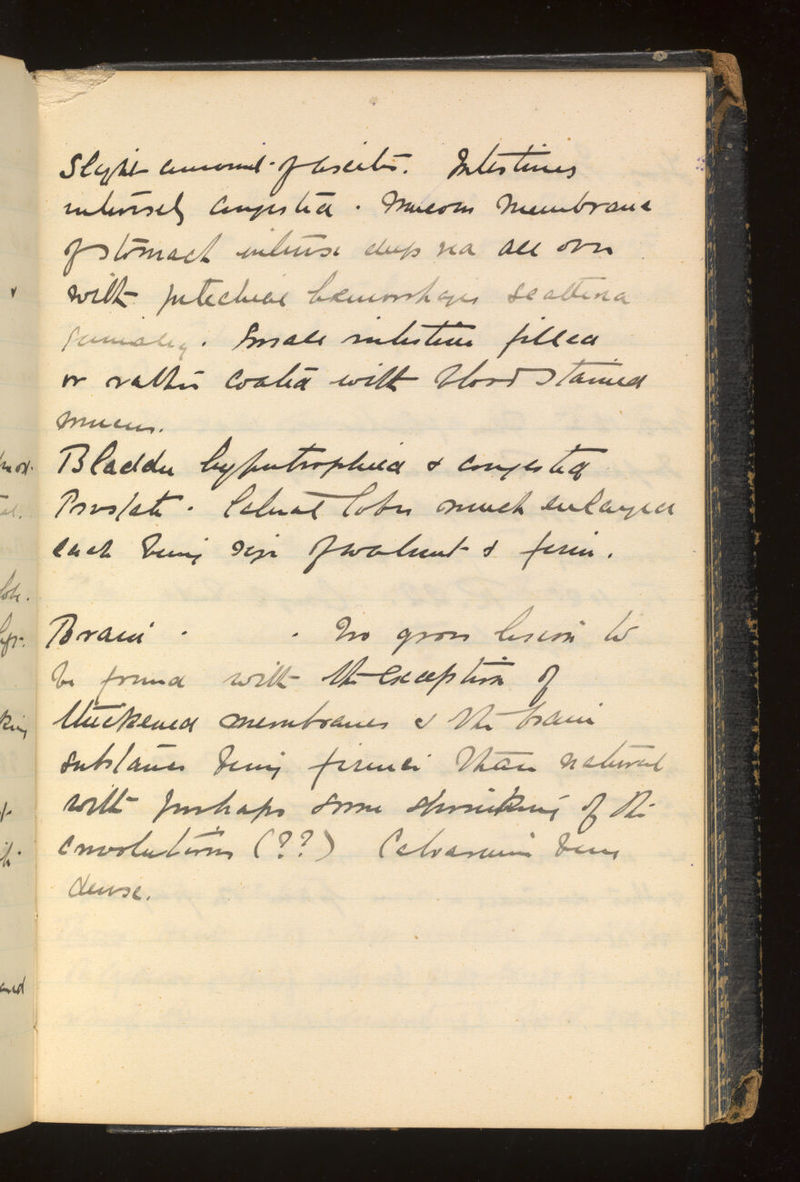 Slight amount of ascites. Intestines
intensely congested. Mucous membrane
of stomach intense deep red all over
with petechial haemorrhages scattered
. Small intestine filled
or rather coated with blood stained
mucus.
Bladder hypertrophied & congested
Prostate. Lateral lobes much enlarged
each being size of walnut & firm.
Brain. . No gross lesion to
be found with the exception of
thickened membranes & the brain
substance being firmer than natural
with perhaps some shrinking of the
convolutions (??) Calvarium being
dense.